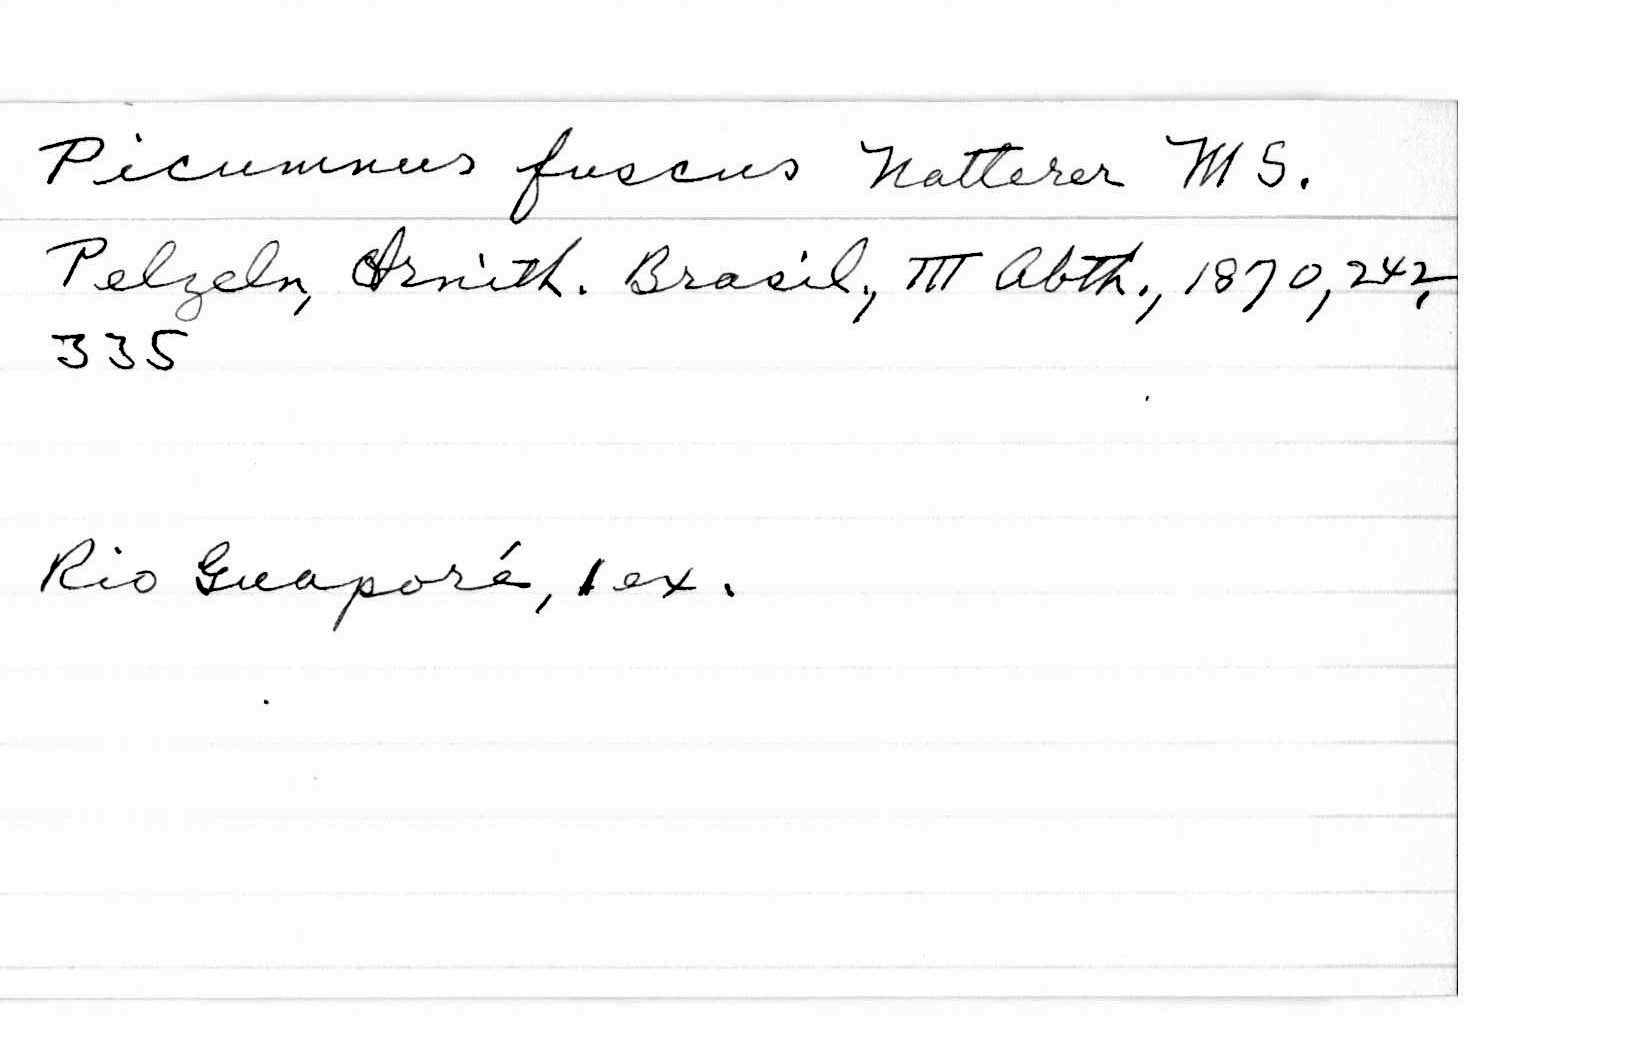 Picumnus fuscus Natterer MS.
Pelzeln, Ornith. Brasil., III Abth., 1870, 242,
335
Rio Guaporé, 1 ex.